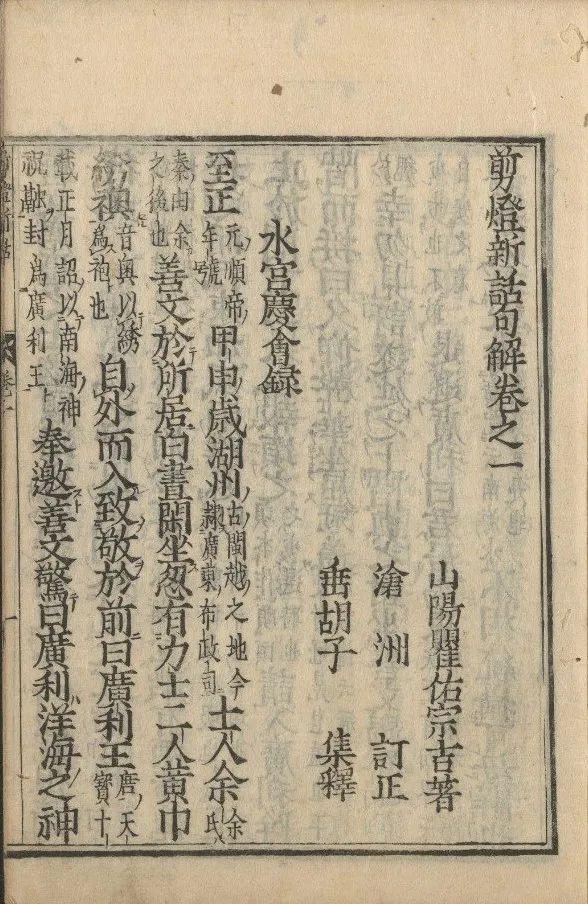 剪燈新話句解卷之一
山陽瞿佑宗吉著
滄洲 訂正
垂胡子 集釋
水宮慶會録
至正元順帝年號甲申歲潮州古閩越之地今隷廣東布政司士人余余氏
秦由余之後也善文於所居白晝閑坐忽有力士二人黃巾
綉襖音奧以綉爲袍也自外而入致敬於前曰廣利王唐天寶十
載正月詔以南海神祝融封爲廣利王奉邀善文驚曰廣利洋海之神